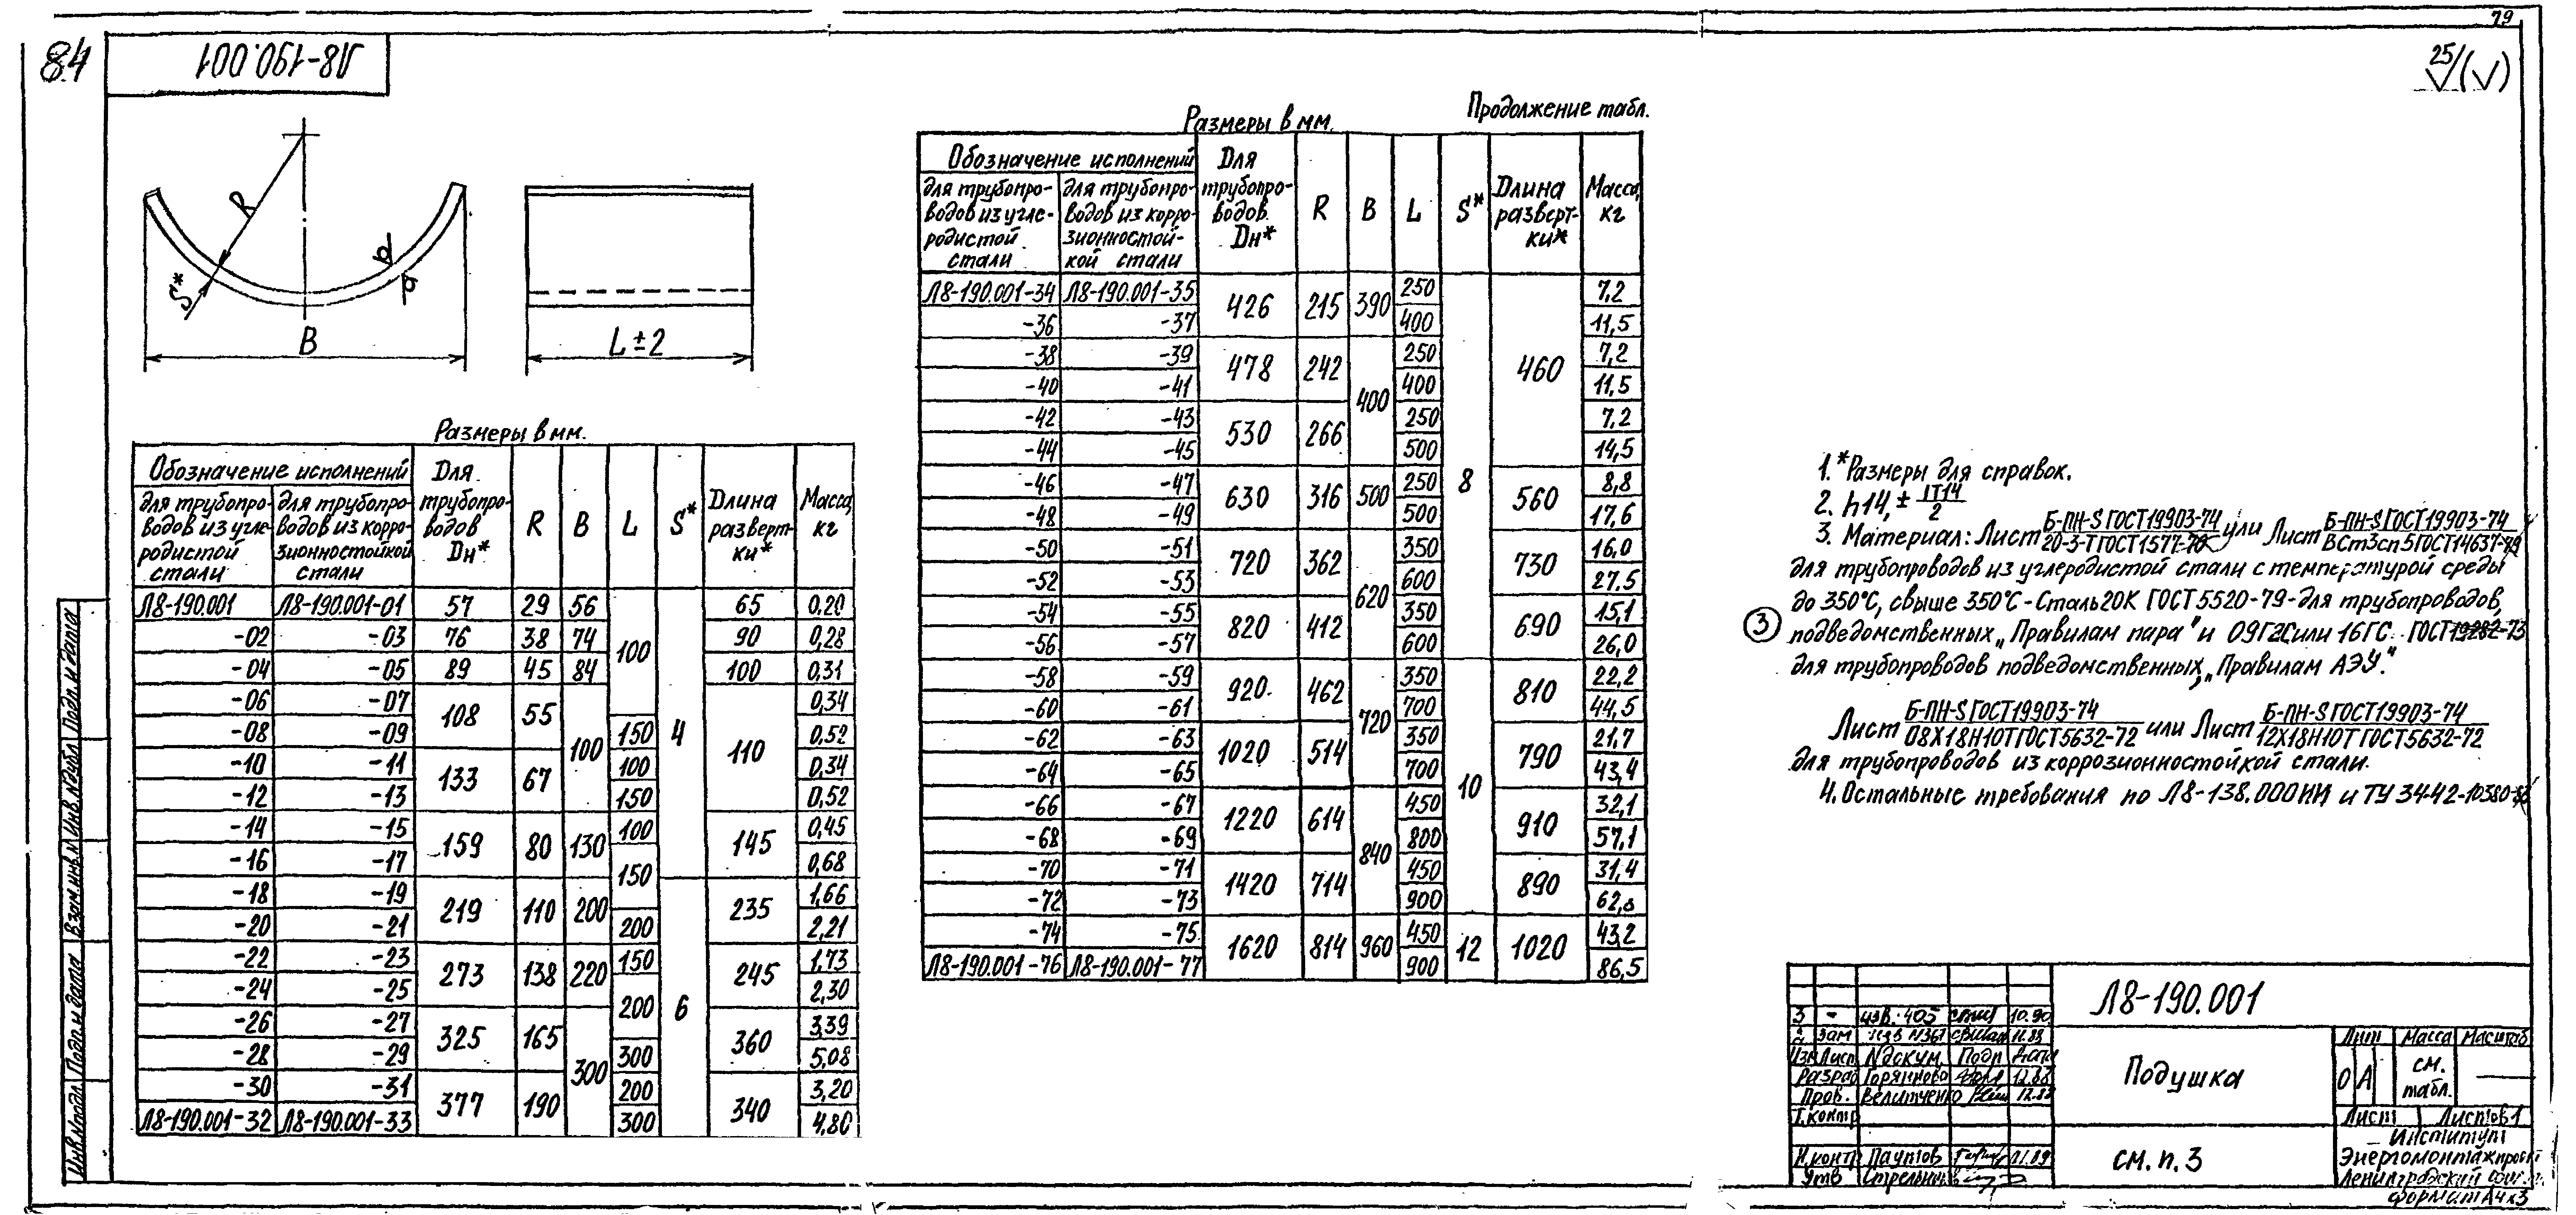 79
8.4
Л8-190.001
25/(√)
R
S*
B
L±2
Размеры в мм.
Обозначение исполнений
для трубопроводов из углеродистой стали
для трубопроводов из коррозионностойкой стали
Для трубопроводов Dн*
R
B
L
S*
Длина развертки*
Масса, кг
Л8-190.001 Л8-190.001-01 57 29 56 100 4 65 0,20
-02 -03 76 38 74 90 0,28
-04 -05 89 45 84 100 0,31
-06 -07 108 55 100 110 0,34
-08 -09 150 0,52
-10 -11 133 67 100 0,34
-12 -13 150 0,52
-14 -15 159 80 130 100 145 0,45
-16 -17 150 0,68
-18 -19 219 110 200 6 235 1,66
-20 -21 200 2,21
-22 -23 273 138 220 150 245 1,73
-24 -25 200 2,30
-26 -27 325 165 300 360 3,39
-28 -29 300 5,08
-30 -31 377 190 200 340 3,20
Л8-190.001-32 Л8-190.001-33 300 4,80
Продолжение табл.
Размеры в мм.
Обозначение исполнений
для трубопроводов из углеродистой стали
для трубопроводов из коррозионностойкой стали
Для трубопроводов Dн*
R
B
L
S*
Длина развертки*
Масса, кг
Л8-190.001-34 Л8-190.001-35 426 215 390 250 8 460 7,2
-36 -37 400 11,5
-38 -39 478 242 400 250 7,2
-40 -41 400 11,5
-42 -43 530 266 250 7,2
-44 -45 500 14,5
-46 -47 630 316 500 250 560 8,8
-48 -49 500 17,6
-50 -51 720 362 620 350 730 16,0
-52 -53 600 27,5
-54 -55 820 412 350 690 15,1
-56 -57 600 26,0
-58 -59 920 462 720 350 10 810 22,2
-60 -61 700 44,5
-62 -63 1020 514 350 790 21,7
-64 -65 700 43,4
-66 -67 1220 614 840 450 910 32,1
-68 -69 800 57,1
-70 -71 1420 714 450 890 31,4
-72 -73 900 62,8
-74 -75 1620 814 960 450 12 1020 43,2
Л8-190.001-76 Л8-190.001-77 900 86,5
1. *Размеры для справок.
2. h14, ± IT14/2
3. Материал: Лист Б-ПН-S ГОСТ19903-74 / 20-3-Т ГОСТ1577-70 или Лист Б-ПН-S ГОСТ19903-74 / ВСт3сп5 ГОСТ14637-79
для трубопроводов из углеродистой стали с температурой среды
до 350°С, свыше 350°С - Сталь 20К ГОСТ 5520-79 - для трубопроводов,
③ подведомственных „Правилам пара" и 09Г2С или 16ГС ГОСТ19282-73
для трубопроводов подведомственных „Правилам АЭУ."
Лист Б-ПН-S ГОСТ19903-74 / 08Х18Н10Т ГОСТ5632-72 или Лист Б-ПН-S ГОСТ19903-74 / 12Х18Н10Т ГОСТ5632-72
для трубопроводов из коррозионностойкой стали.
4. Остальные требования по Л8-138.000ИИ и ТУ 34-42-10380-
Инв.№подл. Подп. и дата Взам.инв.№ Инв.№дубл. Подп. и дата
Л8-190.001
3 - изв. 405 10.90
Зам 11.89
Изм Лист №докум. Подп. Дата
Разраб Горяинова 12.83
Пров. Велитченко 12.83
Т.контр
Н.контр Паутов 11.89
Утв
Подушка
см. п. 3
Лит Масса Масштаб
О А см. табл. —
Лист Листов 1
Институт
Энергомонтажпроект
Ленинградский
формат А4х3